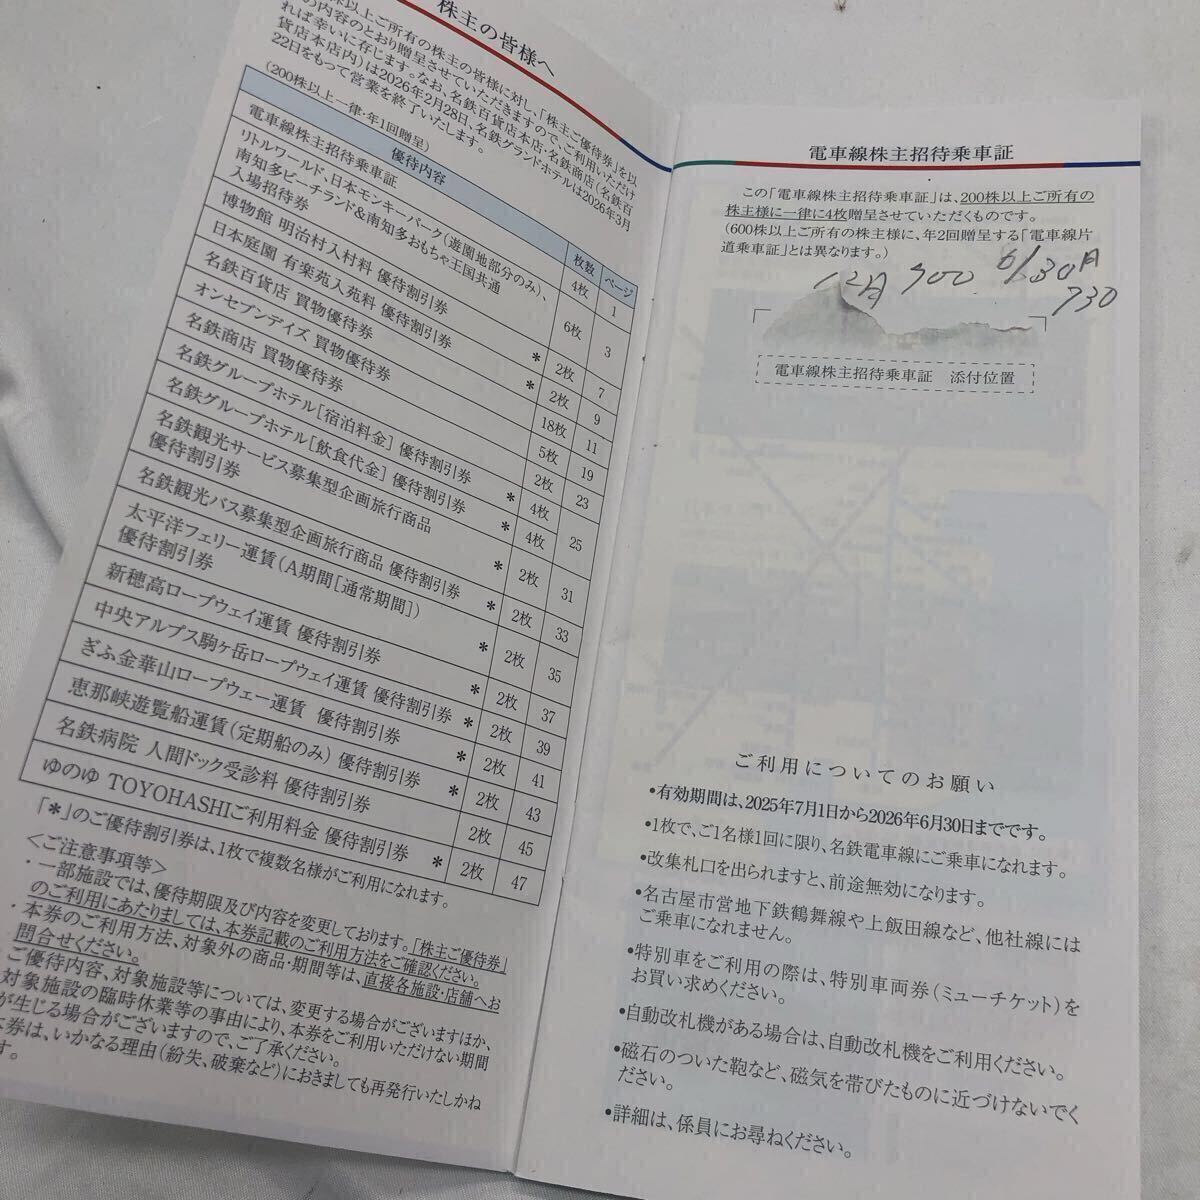 株主の皆様へ
株以上ご所有の株主の皆様に対し、「株主ご優待券」を以
の内容のとおり贈呈させていただきますので、ご利用いただけ
れば幸いに存じます。なお、名鉄百貨店本店・名鉄商店（名鉄百
貨店本店内）は2026年2月28日、名鉄グランドホテルは2026年3月
22日をもって営業を終了いたします。
（200株以上一律・年1回贈呈）
優待内容 枚数 ページ
電車線株主招待乗車証 4枚 1
リトルワールド、日本モンキーパーク（遊園地部分のみ）、
南知多ビーチランド&南知多おもちゃ王国共通
入場招待券 6枚 3
博物館 明治村入村料 優待割引券 * 2枚 7
日本庭園 有楽苑入苑料 優待割引券 * 2枚 9
名鉄百貨店 買物優待券 18枚 11
オンセブンデイズ 買物優待券 5枚 19
名鉄商店 買物優待券 2枚 23
名鉄グループホテル［宿泊料金］ 優待割引券 * 4枚
名鉄グループホテル［飲食代金］ 優待割引券 * 4枚 25
名鉄観光サービス募集型企画旅行商品
優待割引券 * 2枚 31
名鉄観光バス募集型企画旅行商品 優待割引券 * 2枚 33
太平洋フェリー運賃（A期間［通常期間］）
優待割引券 * 2枚 35
新穂高ロープウェイ運賃 優待割引券 * 2枚 37
中央アルプス駒ヶ岳ロープウェイ運賃 優待割引券 * 2枚 39
ぎふ金華山ロープウェー運賃 優待割引券 * 2枚 41
恵那峡遊覧船運賃（定期船のみ） 優待割引券 * 2枚 43
名鉄病院 人間ドック受診料 優待割引券 2枚 45
ゆのゆ TOYOHASHIご利用料金 優待割引券 * 2枚 47
「*」のご優待割引券は、1枚で複数名様がご利用になれます。
＜ご注意事項等＞
・一部施設では、優待期限及び内容を変更しております。「株主ご優待券」
のご利用にあたりましては、本券記載のご利用方法をご確認ください。
・本券のご利用方法、対象外の商品・期間等は、直接各施設・店舗へお
問合せください。
ご優待内容、対象施設等については、変更する場合がございますほか、
対象施設の臨時休業等の事由により、本券をご利用いただけない期間
が生じる場合がございますので、ご了承ください。
本券は、いかなる理由（紛失、破棄など）におきましても再発行いたしかね
す。
電車線株主招待乗車証
この「電車線株主招待乗車証」は、200株以上ご所有の
株主様に一律に4枚贈呈させていただくものです。
（600株以上ご所有の株主様に、年2回贈呈する「電車線片
道乗車証」とは異なります。）
12月 900 6/30月
730
電車線株主招待乗車証 添付位置
ご利用についてのお願い
•有効期間は、2025年7月1日から2026年6月30日までです。
•1枚で、ご1名様1回に限り、名鉄電車線にご乗車になれます。
•改集札口を出られますと、前途無効になります。
•名古屋市営地下鉄鶴舞線や上飯田線など、他社線には
ご乗車になれません。
•特別車をご利用の際は、特別車両券（ミューチケット）を
お買い求めください。
•自動改札機がある場合は、自動改札機をご利用ください。
•磁石のついた鞄など、磁気を帯びたものに近づけないでく
ださい。
•詳細は、係員にお尋ねください。